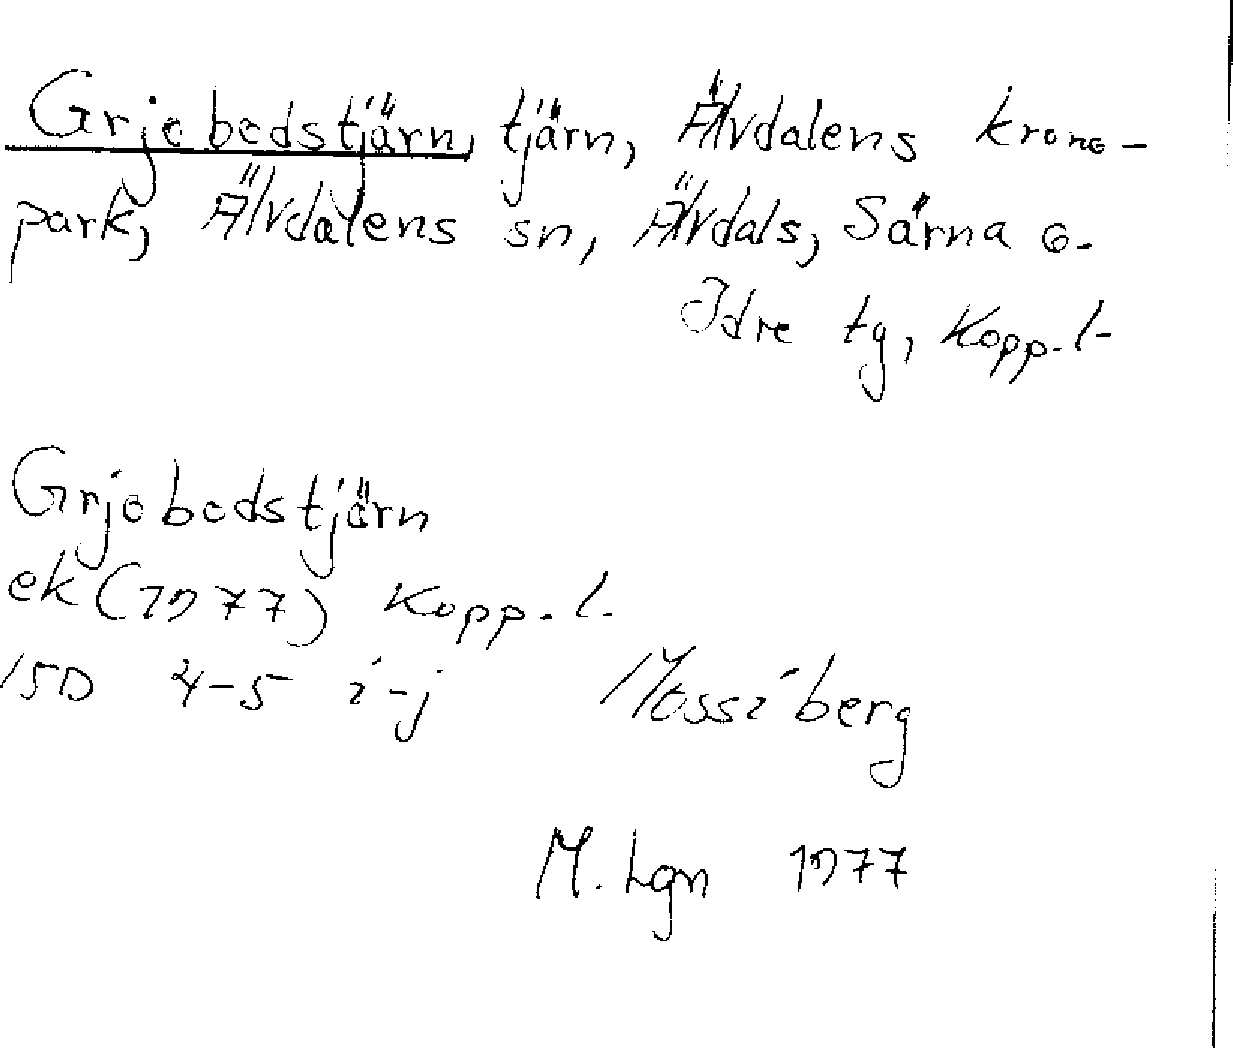 Grjobodstjärn, tjärn, Älvdalens krono-
park, Älvdalens sn, Älvdals, Särna o.
Idre tg, Kopp. l.
Grjobodstjärn
ek (1977) Kopp. l.
15D 4-5 i-j Mossiberg
M. Lgn 1977